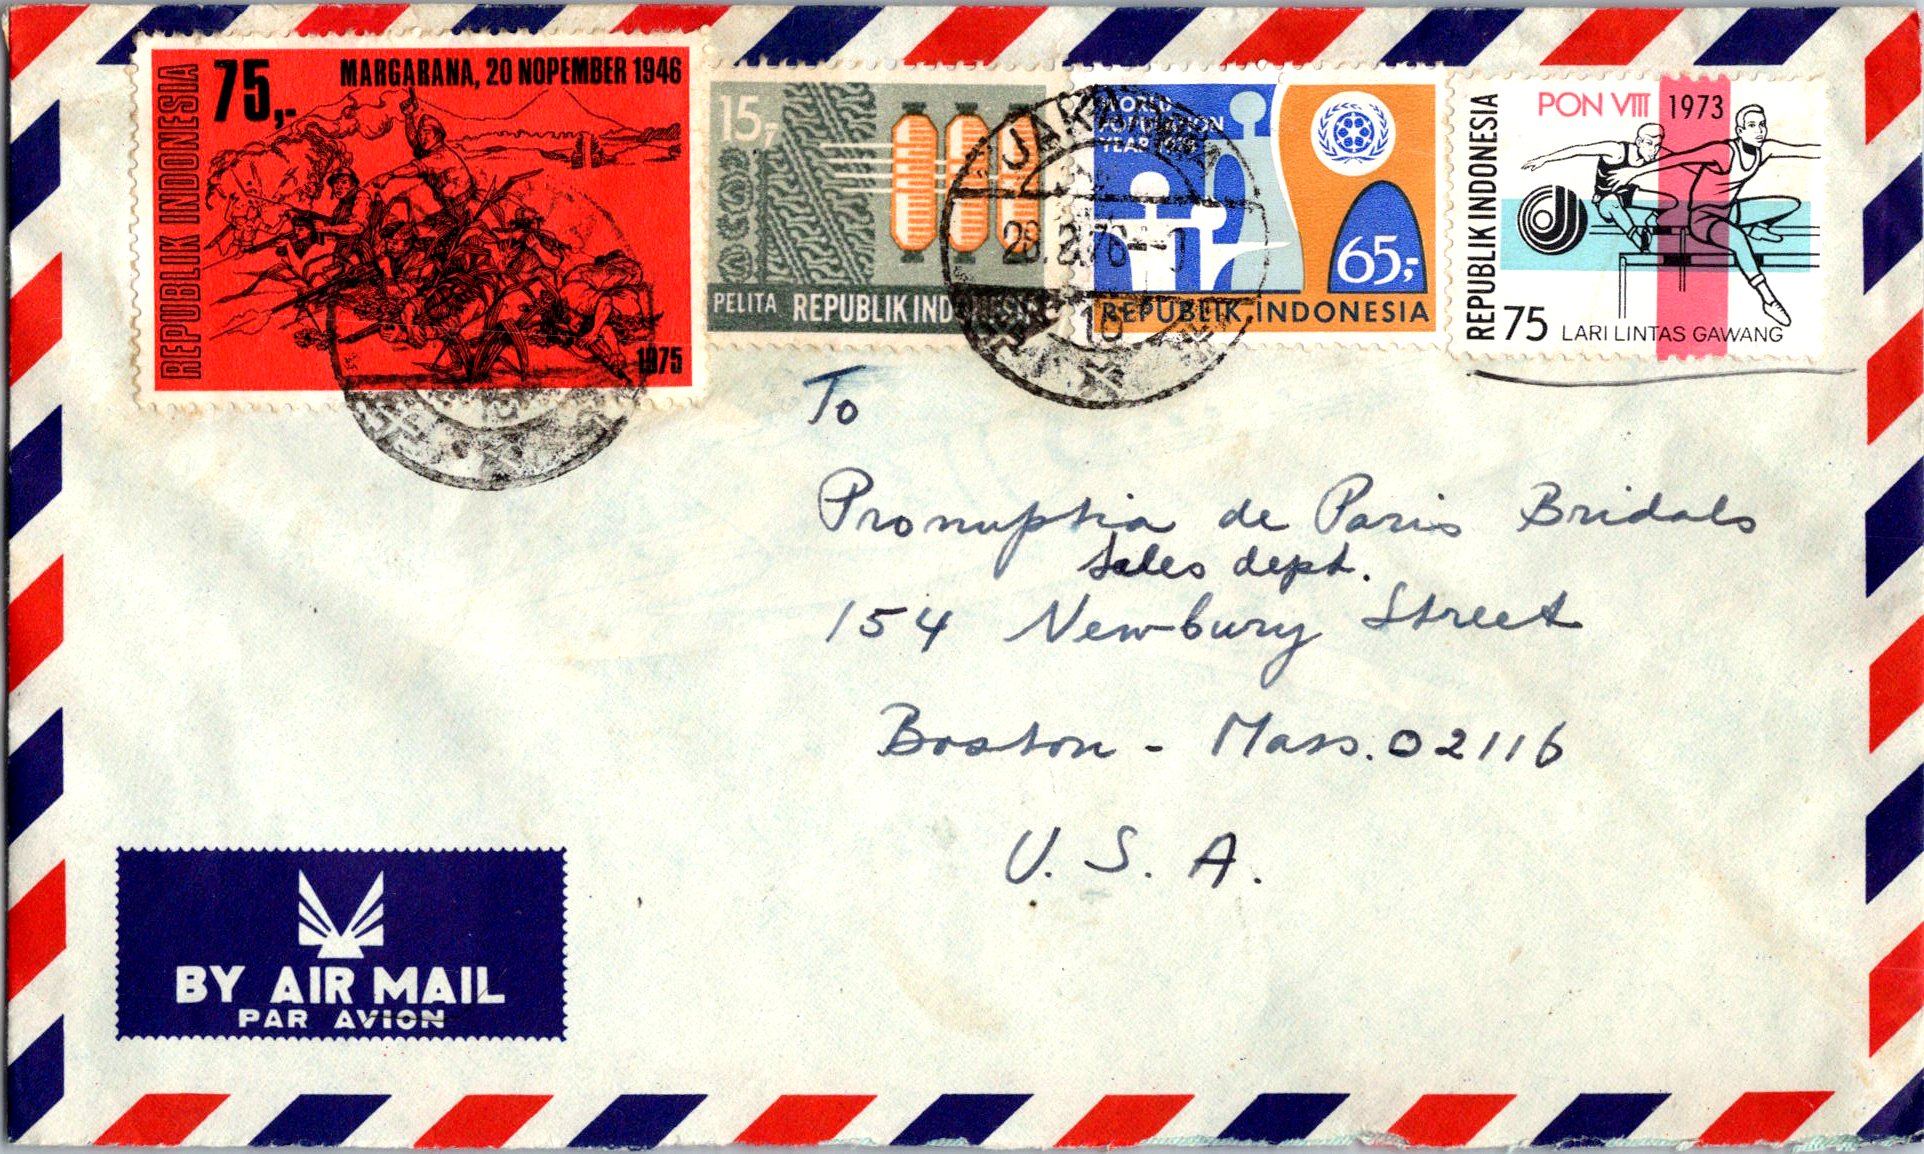 75,-
MARGARANA, 20 NOPEMBER 1946
REPUBLIK INDONESIA
1975
15,-
PELITA REPUBLIK INDONESIA
WORLD
POPULATION
YEAR 1974
65,-
REPUBLIK INDONESIA
PON VIII 1973
REPUBLIK INDONESIA
75 LARI LINTAS GAWANG
JAKARTA
10
To
Pronuptia de Paris Bridals
Sales dept.
154 Newbury Street
Boston - Mass. 02116
U. S. A.
BY AIR MAIL
PAR AVION